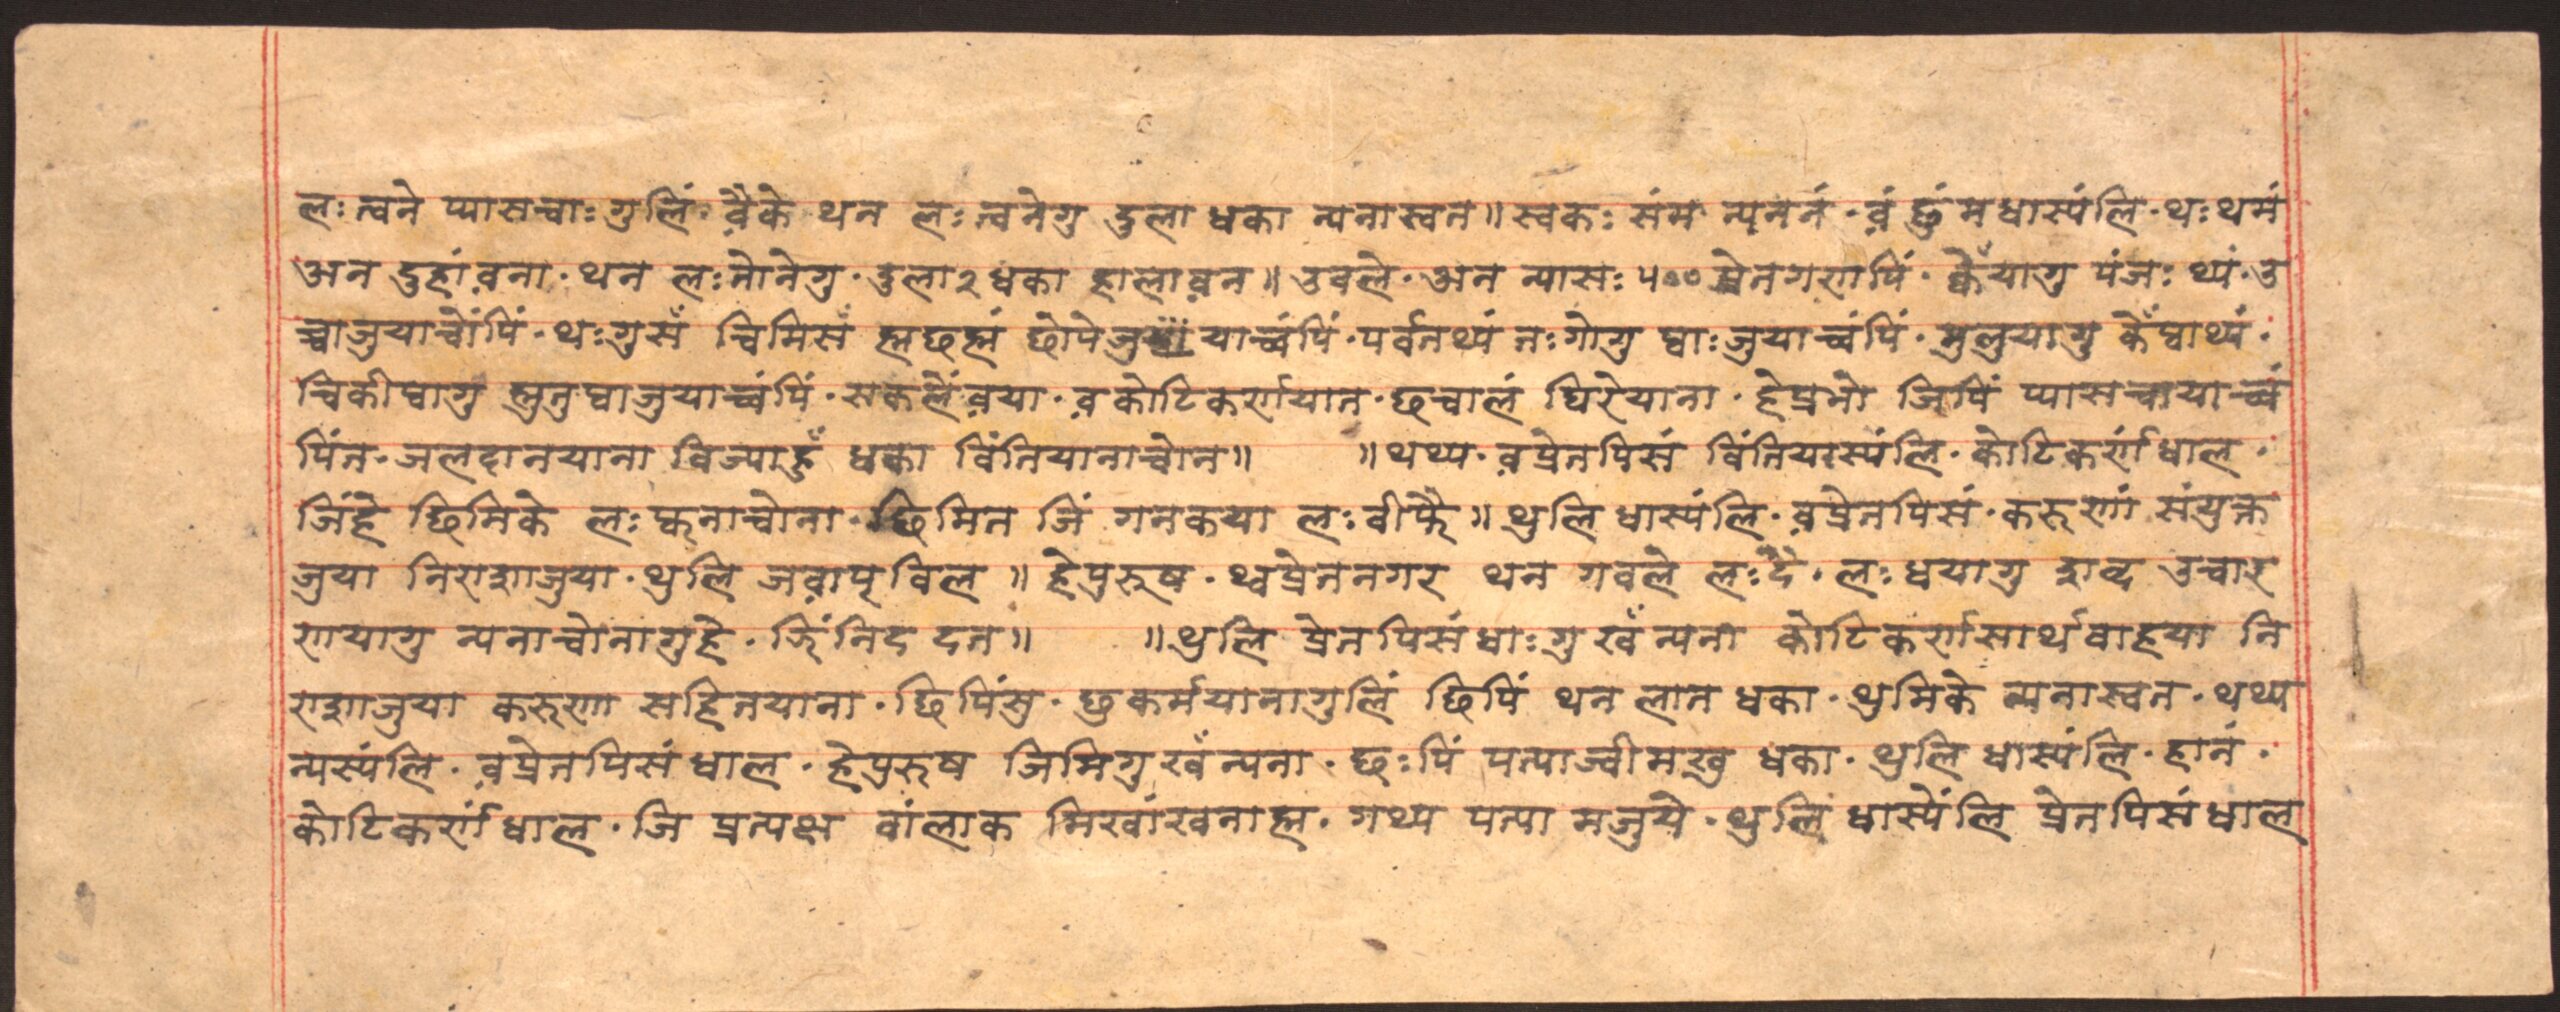 लः त्वने प्यासचाः गुलिं · व़ैके थन लः त्वनेगु दुला धका न्यनास्वत॥ स्वकः संम न्यनानं · व़ं छुं मधास्यंलि · थः थमं
अन दुहांव़ना · थन लःतोनेगु · दुला२ धका हालाव़न॥ उबले · अन न्यासः ५०० प्रेतगणपिं · क्वैंयागु पंजः थ्यं · उ
च्वाजुयाच्वोंपिं · थःगुसँ चिमिसँ ह्मछह्मं छोपेजुयाच्वंपिं · पर्वतथ्यं तःगोगु प्वाःजुयाच्वंपिं · मुलुयागु केँप्वाथ्यं ·
चिकीप्वागु म्हुतुप्वाजुयाच्वंपिं · सकलें व़या · व़ कोटिकर्णयात · छचालं घिरेयाना · हेप्रभो जिपिं प्यासचायाच्वं
पिंत · जलदानयाना बिज्याहुँ धका विंतियानाच्वोन॥ ॥थथ्य · व़प्रेतपिसं विंतियास्यंलि · कोटिकर्णंधाल ·
जिंहे छिमिके लः फ्वनाच्वोना · छिमित जिं गनकया लः बीफै॥ थुलि धास्यंलि · व़प्रेतपिसं · करूणां संयुक्त
जुया निराशाजुया · थुलि जव़ाप् बिल॥ हेपुरूष · थ्वप्रेतनगर थन गबले लःदै · लःधयागु शब्द उच्चार
णयागु न्यनाच्वोनागुहे · झिंनिद दत॥ ॥थुलि प्रेतपिसंधाःगु खँ न्यना कोटिकर्णसार्थवाहया नि
राशाजुया करूणा सहितयाना · छिपिंसु · छुकर्मयानागुलिं छिपिं थन लात धका · थुमिके न्यनास्वत · थथ्य
न्यस्यंलि · व़प्रेतपिसं धाल · हेपुरूष जिमिगु खँन्यना · छःपिं पत्याज्वीमखु धका · थुलि धास्यंलि · हानं ·
कोटिकर्णंधाल · जि प्रत्यक्ष बांलाक मिखांखनाह्म · गथ्य पत्या मजुये · थुलि धास्येंलि प्रेतपिसंधाल